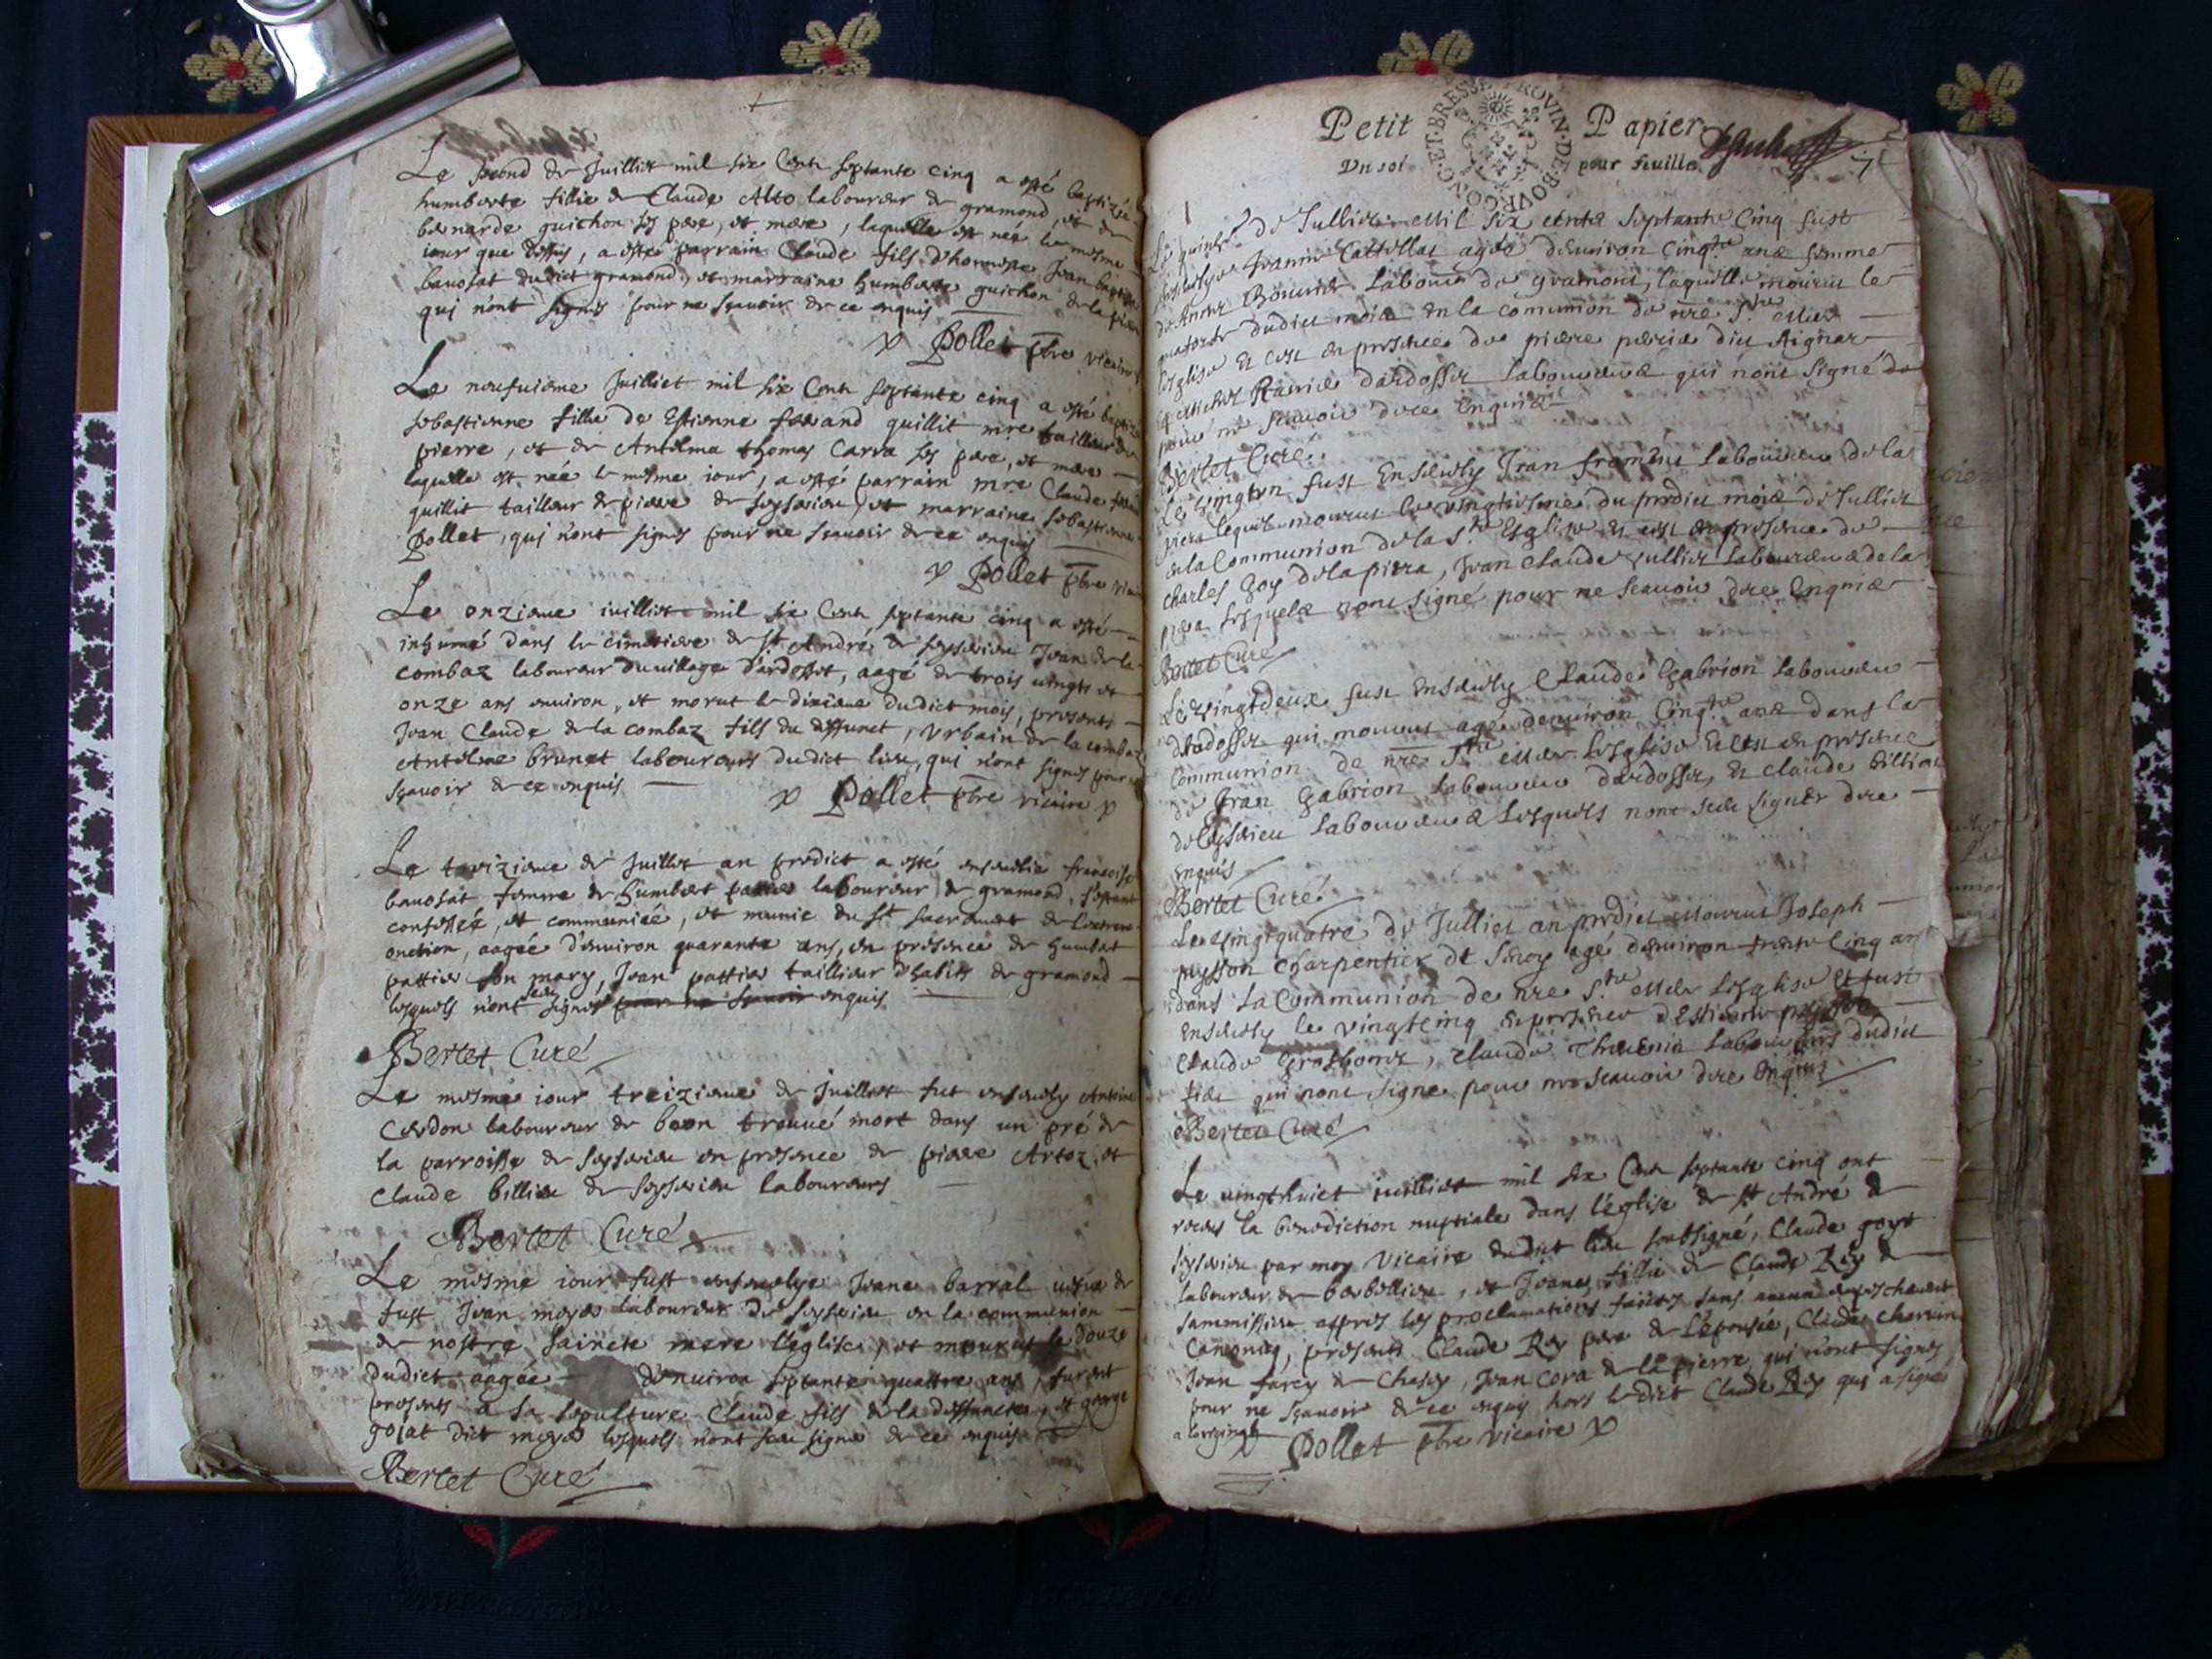 Le second de Juilliet mil six Cents septante cinq a esté baptizée
humberte fillie de Claude Alto laboureur de gramond, et de
bernarde guichon ses pere, et mere, laquelle est née le mesme
iour que dessus, a esté parrain Claude fils d'honneste Jean baptiste
bavosat dudict gramond, et marraine humberte guichon de la pierre
qui n'ont signés pour ne sçavoir de ce enquis
Pollet pbre vicaire
Le neufuieme Juilliet mil six Cents septante cinq a esté baptizée
sebastienne fillie de Estienne ferrand quillit mre tailleur de
pierre, et de Antelma thomas Carra ses pere, et mere
laquelle est née le mesme iour, a esté parrain mre Claude
quillit tailleur de pierre de seyserieu, et marraine sebastienne
Pollet, qui n'ont signés pour ne sçavoir de ce enquis
Pollet pbre
Le onzieme iuilliet mil six Cents septante cinq a esté
inhumé dans le cimetiere de St André de seyserieu Jean de la
combaz laboureur du village d'ardosset, aagé de trois uingts et
onze ans enuiron, et morut le dixieme dudict mois, presents
Jean Claude de la combaz fils du deffunct, Vrbain de la combaz
Antelme brunet laboureurs dudict lieu, qui n'ont signés pour ne
sçauoir de ce enquis
Pollet pbre vicaire
Le treizieme de Juillet an predict a esté enseuelie francoise
bauosat femme de humbert pattier laboureur de gramond, s'estant
confessée, et communiée, et munie du St sacrement de l'extreme
onction, aagée d'enuiron quarante ans, en présence de humbert
pattier son mary, Jean pattier taillieur d'habits de gramond
lesquels n'ont sceu signer pour ne sçauoir enquis
Bertet Curé
Le mesme iour treizieme de Juillet fut enseuely Antoine
Cerdon laboureur de beon trouué mort dans un pré de
la parroisse de seyserieu en presence de pierre Artoz, et
Claude billieu de seyserieu laboureurs
Bertet Curé
Le mesme iour fust enseuelye Jeane barral uefue de
fust Jean moyer laboureur de seyserieu en la communion
de nostre saincte mere l'église, et mourut le douze
dudict aagée d'enuiron septante quattre ans, furent
presents a sa sepulture Claude fils de la deffuncte, et george
gojat dict moyer lesquels n'ont sceu signer de ce enquis
Bertet Curé
Petit Papier
Vn sol pour feuille
GONC·ET·BRESSE PROVIN·DE·BOVR
Le quinze de Jullier Mil six cents septante Cinq fust
enseuelye Jeanne Cattillat agée d'enuiron Cinqte ans femme
de Bouuier Labour de gramont, laquelle mourut le
quatorze dudict mois en la comunion de nre Ste Mere
l'esglise Et cest en presence de pierre dict Aignar
et Michel d'ardosset laboureurs qui n'ont signé de
pour ne sçauoir de ce Enquis
Bertet Curé
Le Vingtvn fust Enseuely Jean froment Laboureur de la
piera lequel mourut le vingtiesme du predict mois de Julliet
en la Communion de la Ste Esglise Et cest en presence de
Charles Goy de la pierra, Jean Claude Jullier Laboureurs de la
piera lesquels n'ont signé pour ne sceauoir de ce Enquis
Bertet Curé
Le Vingtdeux fust Enseuely Claude Gabrion Laboureur
d'Ardosset qui mourut agé d'enuiron Cinqte ans dans la
Communion de nre Ste Mere L'esglise Et cest en presence
de Jean Gabrion Laboureur d'ardosset, Et Claude billieu
de seyserieu Laboureurs Lesquels n'ont sceu signer de ce
enquis
Bertet Curé
Le vingtquatre de Julliet an predict Mourut Joseph
pujsson charpentier de agé d'enuiron trente Cinq ans
dans La Communion de nre Ste Mere L'esglise Et fust
Enseuely le vingtcinq en presence d'Estienne
Claude Grosbonet, Claude Theuenin Laboureurs dudict
lieu qui n'ont signé pour ne sceauoir de ce Enquis
Bertet Curé
Le uingthuict iuilliet mil six Cents septante cinq ont
receu la benediction nuptiale dans l'église de St André de
seyserieu par moy Vicaire dudict lieu soubsigné, Claude goyt
laboureur de berbellieu, et Jeane fillie de Claude Rey de
sammissieu appres les proclamations faictes sans aucun empeschement
Canonicq, presents Claude Rey pere de l'épousée, Claude Charuin
Jean farcy de Chasey, Jean Cora de la pierre, qui n'ont signés
pour ne sçauoir de ce enquis hors ledict Claude Rey qui a signé
a l'original
Pollet pbre vicaire